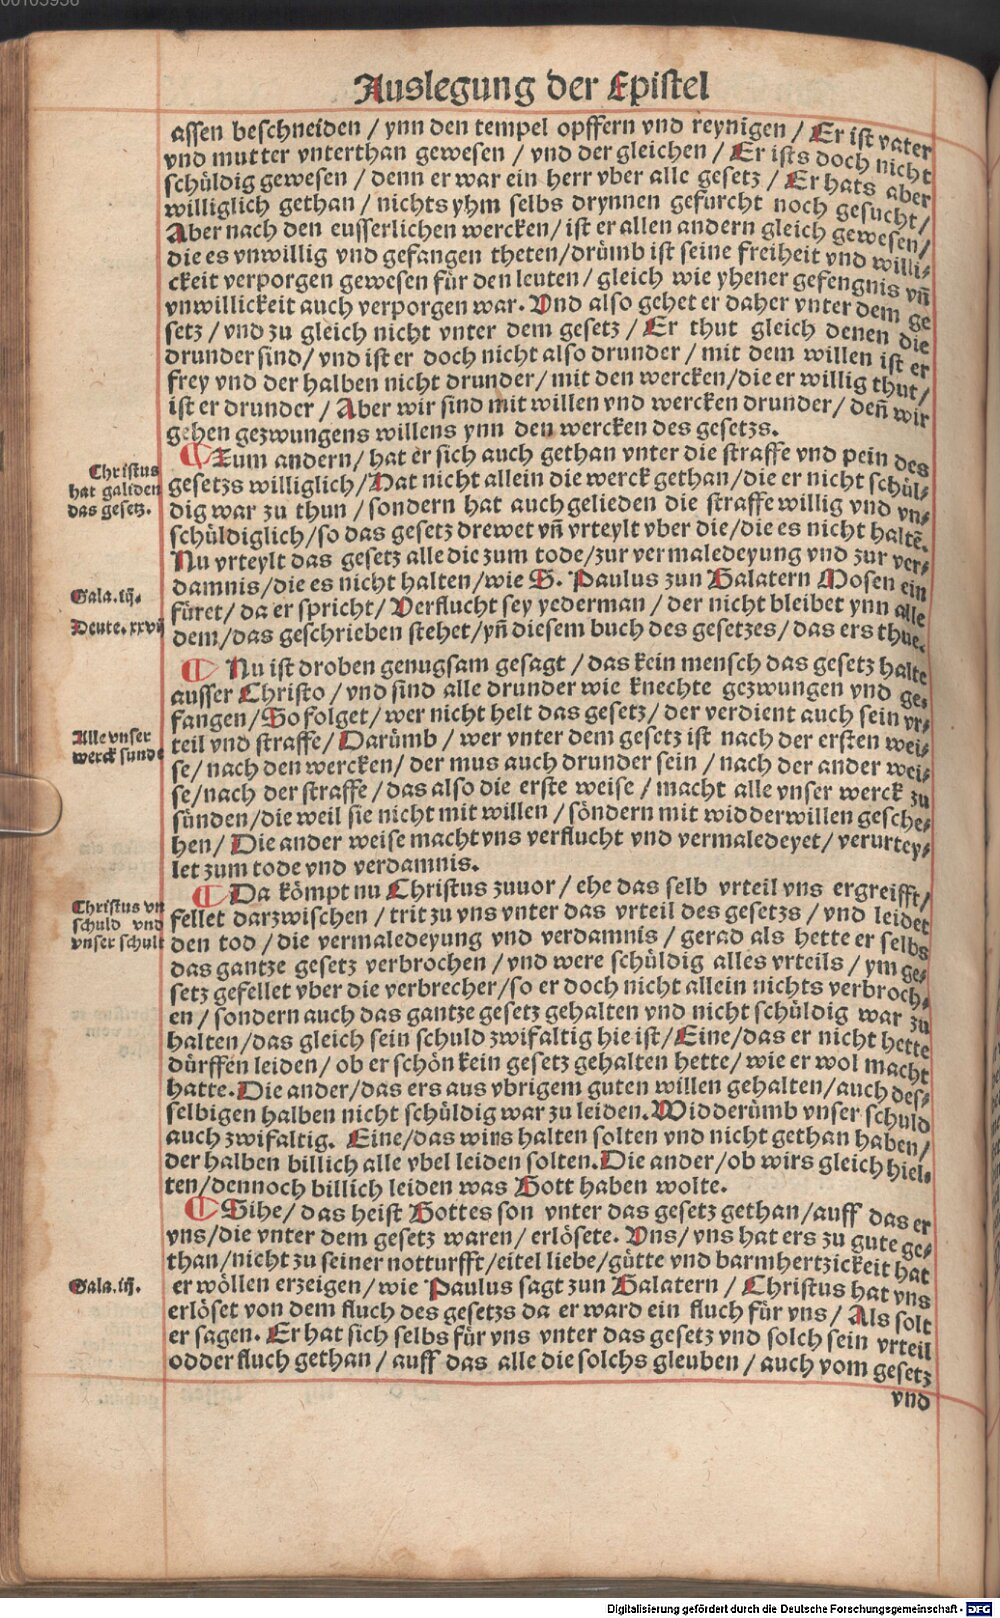 Auslegung der Epistel
assen beschneiden / ynn den tempel opffern vnd reynigen / Er ist vater
vnd mutter vnterthan gewesen / vnd der gleichen / Er ists doch nicht
schüldig gewesen / denn er war ein herr vber alle gesetz / Er hats aber
williglich gethan / nichts yhm selbs drynnen gefurcht noch gesucht /
Aber nach den eusserlichen wercken / ist er allen andern gleich gewesen /
die es vnwillig vnd gefangen theten / drümb ist seine freiheit vnd willi-
ckeit verporgen gewesen für den leuten / gleich wie yhener gefengnis vñ
vnwillickeit auch verporgen war. Vnd also gehet er daher vnter dem ge
setz / vnd zu gleich nicht vnter dem gesetz / Er thut gleich denen die
drunder sind / vnd ist er doch nicht also drunder / mit dem willen ist er
frey vnd der halben nicht drunder / mit den wercken / die er willig thut /
ist er drunder / Aber wir sind mit willen vnd wercken drunder / deñ wir
gehen gezwungens willens ynn den wercken des gesetzs.
¶ Zum andern / hat er sich auch gethan vnter die straffe vnd pein des
Christus
hat gelidden
das gesetz.
gesetzs williglich / Hat nicht allein die werck gethan / die er nicht schül-
dig war zu thun / sondern hat auch gelieden die straffe willig vnd vn-
schüldiglich / so das gesetz drewet vñ vrteylt vber die / die es nicht haltẽ.
Nu vrteylt das gesetz alle die zum tode / zur vermaledeyung vnd zur ver-
damnis / die es nicht halten / wie S. Paulus zun Galatern Mosen ein
Gala. iij.
füret / da er spricht / Verflucht sey yederman / der nicht bleibet ynn alle
Deute. xxvij
dem / das geschrieben stehet / yñ diesem buch des gesetzes / das ers thue.
¶ Nu ist droben genugsam gesagt / das kein mensch das gesetz halte
ausser Christo / vnd sind alle drunder wie knechte gezwungen vnd ge-
fangen / So folget / wer nicht helt das gesetz / der verdient auch sein vr-
Alle vnser
werck sunde
teil vnd straffe / Darümb / wer vnter dem gesetz ist nach der ersten wei-
se / nach den wercken / der mus auch drunder sein / nach der ander wei-
se / nach der straffe / das also die erste weise / macht alle vnser werck zu
sünden / die weil sie nicht mit willen / söndern mit widderwillen gesche-
hen / Die ander weise macht vns verflucht vnd vermaledeyet / verurtey-
let zum tode vnd verdamnis.
¶ Da kömpt nu Christus zuuor / ehe das selb vrteil vns ergreifft /
Christus vn
schuld vnd
vnser schult
fellet darzwischen / trit zu vns vnter das vrteil des gesetzs / vnd leidet
den tod / die vermaledeyung vnd verdamnis / gerad als hette er selbs
das gantze gesetz verbrochen / vnd were schüldig alles vrteils / ym ge-
setz gefellet vber die verbrecher / so er doch nicht allein nichts verbroch-
en / sondern auch das gantze gesetz gehalten vnd nicht schüldig war zu
halten / das gleich sein schuld zwifaltig hie ist / Eine / das er nicht hette
dürffen leiden / ob er schön kein gesetz gehalten hette / wie er wol macht
hatte. Die ander / das ers aus vbrigem guten willen gehalten / auch des-
selbigen halben nicht schüldig war zu leiden. Widderümb vnser schuld
auch zwifaltig. Eine / das wirs halten solten vnd nicht gethan haben /
der halben billich alle vbel leiden solten. Die ander / ob wirs gleich hiel-
ten / dennoch billich leiden was Gott haben wolte.
¶ Sihe / das heist Gottes son vnter das gesetz gethan / auff das er
vns / die vnter dem gesetz waren / erlösete. Vns / vns hat ers zu gute ge-
than / nicht zu seiner notturfft / eitel liebe / gütte vnd barmhertzickeit hat
Gala. iij.
er wöllen erzeigen / wie Paulus sagt zun Galatern / Christus hat vns
erlöset von dem fluch des gesetzs da er ward ein fluch für vns / Als solt
er sagen. Er hat sich selbs für vns vnter das gesetz vnd solch sein vrteil
odder fluch gethan / auff das alle die solchs gleuben / auch vom gesetz
vnd
Digitalisierung gefördert durch die Deutsche Forschungsgemeinschaft - DFG